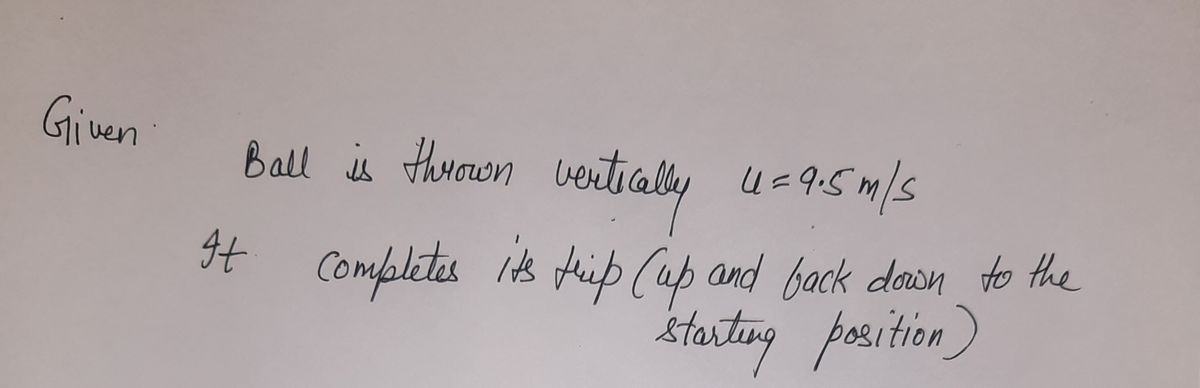 Given
Ball is thrown vertically u = 9.5 m/s
It completes its trip (up and back down to the
starting position)